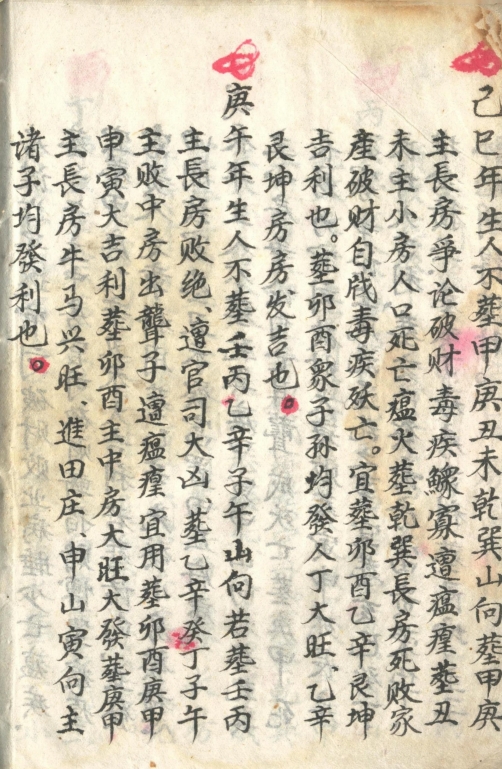 己巳年生人不塟甲庚丑未乾巽山向塟甲庚
主長房爭论破财毒疾鰥寡遭瘟㾮塟丑
未主小房人口死亡瘟火塟乾巽長房死败家
産破财自戕毒疾殀亡。宜塟卯酉乙辛艮坤
吉利也。塟卯酉众子孙均發人丁大旺、乙辛
艮坤房房发吉也。
庚午年生人不塟壬丙乙辛子午山向若塟壬丙
主長房败绝、遭官司大凶、塟乙辛癸丁子午
主败中房出聾子遭瘟㾮宜用塟卯酉庚甲
申寅大吉利塟卯酉主中房大旺大發塟庚甲
主長房牛马兴旺、進田庄、申山寅向主
诸子均發利也。